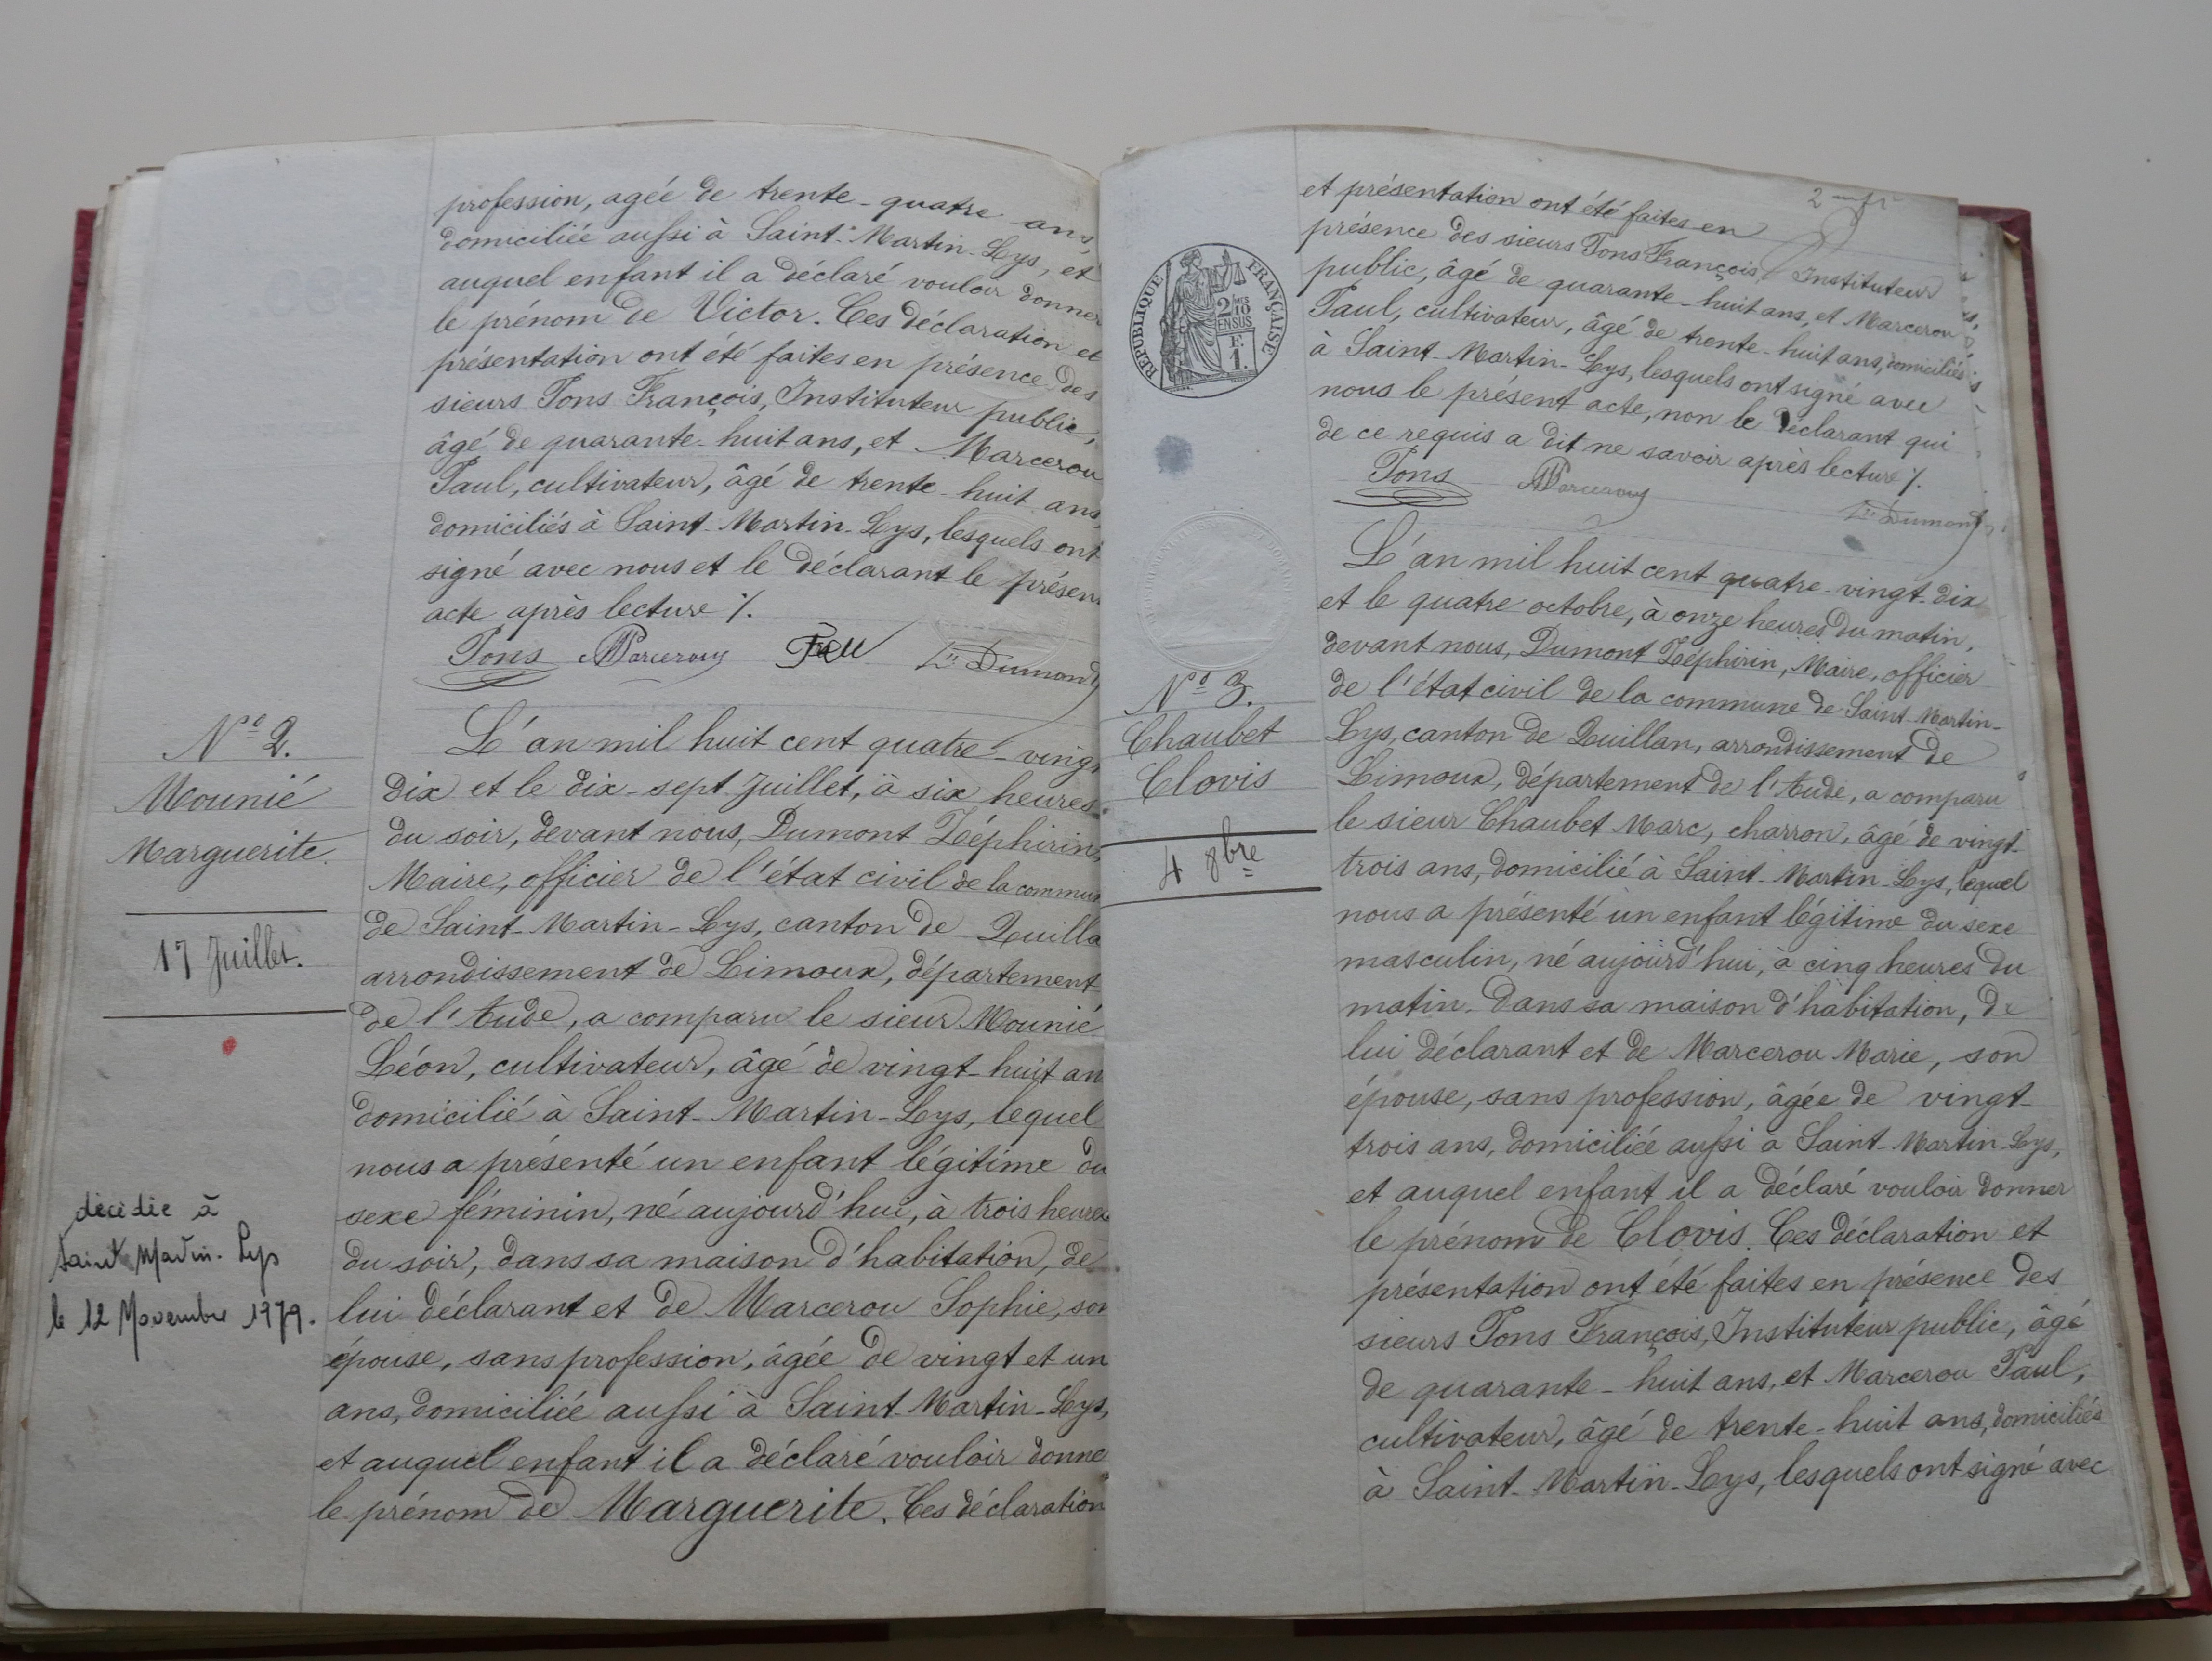 profession, agée de trente-quatre ans,
domiciliée aussi à Saint-Martin-Lys, et
auquel enfant il a déclaré vouloir donner
le prénom de Victor. Ces déclaration et
présentation ont été faites en présence des
sieurs Pons François, Instituteur public,
âgé de quarante-huit ans, et Marcerou
Paul, cultivateur, âgé de trente-huit ans,
domiciliés à Saint-Martin-Lys, lesquels ont
signé avec nous et le déclarant le présen
acte après lecture ./.
Pons Marcerou Dumont
N° 2.
Mounié
Marguerite.
17 Juillet.
L'an mil huit cent quatre-vingt
dix et le dix-sept Juillet, à six heures
du soir, devant nous, Dumont Zéphirin,
Maire, officier de l'état civil de la commun
de Saint-Martin-Lys, canton de Quilla
arrondissement de Limoux, département
de l'Aude, a comparu le sieur Mounié
Léon, cultivateur, âgé de vingt-huit an
domicilié à Saint-Martin-Lys, lequel
nous a présenté un enfant légitime du
sexe féminin, né aujourd'hui, à trois heures
du soir, dans sa maison d'habitation, de
lui déclarant et de Marcerou Sophie, son
épouse, sans profession, âgée de vingt et un
ans, domiciliée aussi à Saint-Martin-Lys,
et auquel enfant il a déclaré vouloir donne
le prénom de Marguerite. Ces déclaration
décédée à
Saint Martin-Lys
le 12 Novembre 1979.
et présentation ont été faites en
présence des sieurs Pons François, Instituteur
public, âgé de quarante-huit ans, et Marcerou
Paul, cultivateur, âgé de trente-huit ans, domiciliés
à Saint-Martin-Lys, lesquels ont signé avec
nous le présent acte, non le déclarant qui
de ce requis a dit ne savoir après lecture ./.
Pons Marcerou Dumont
RÉPUBLIQUE FRANÇAISE
2/10
EN SUS
F.
1.
N° 3.
Chaubet
Clovis
4 8bre
L'an mil huit cent quatre-vingt-dix
et le quatre octobre, à onze heures du matin,
devant nous, Dumont Zéphirin, Maire, officier
de l'état civil de la commune de Saint-Martin-
Lys, canton de Quillan, arrondissement de
Limoux, département de l'Aude, a comparu
le sieur Chaubet Marc, charron, âgé de vingt-
trois ans, domicilié à Saint-Martin-Lys, lequel
nous a présenté un enfant légitime du sexe
masculin, né aujourd'hui, à cinq heures du
matin. Dans sa maison d'habitation, de
lui déclarant et de Marcerou Marie, son
épouse, sans profession, âgée de vingt-
trois ans, domiciliée aussi a Saint-Martin-Lys,
et auquel enfant il a déclaré vouloir donner
le prénom de Clovis. Ces déclaration et
présentation ont été faites en présence des
sieurs Pons François, Instituteur public, âgé
de quarante-huit ans, et Marcerou Paul,
cultivateur, âgé de trente-huit ans, domiciliés
à Saint-Martin-Lys, lesquels ont signé avec